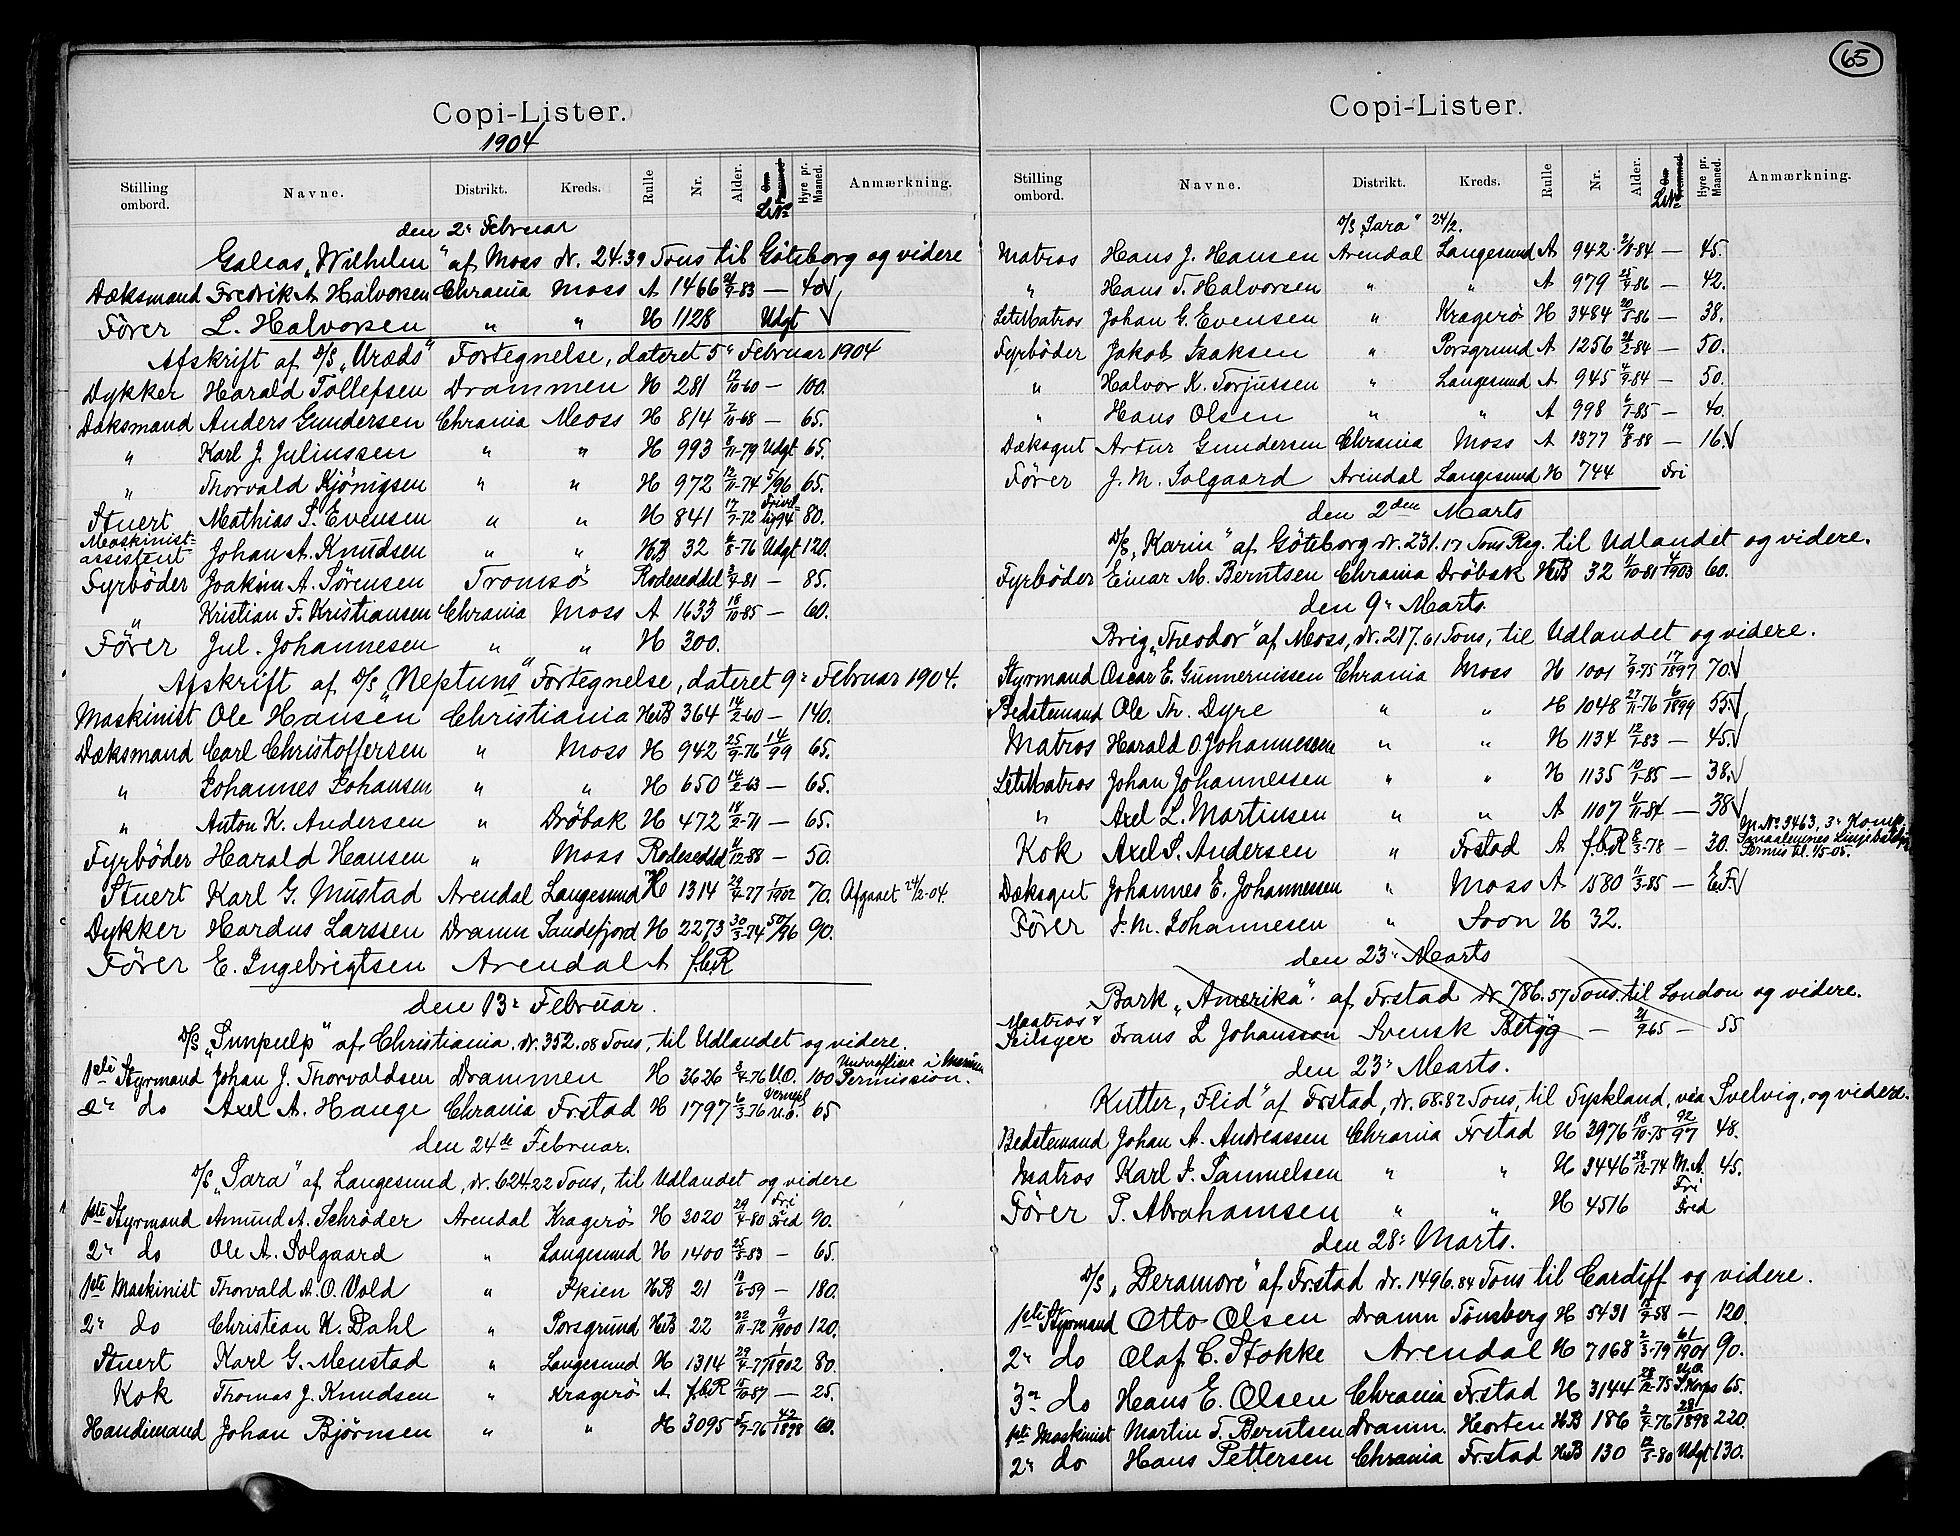 Copi-Lister.
1904
Stilling ombord. Navne. Distrikt. Kreds. Rulle Nr. Alder. L.No Hyre pr. Maaned. Anmærkning.
den 2' Februar
Galeas „Wilhelm" af Moss dr. 24.39 Tons til Göteborg og videre
Dæksmand Fredrik A. Halvorsen Chrania Moss A 1466 9-83 — 40
Fører L. Halvorsen " " H 1128 Udgt
Afskrift af D/S „Uræds" Fortegnelse, dateret 5' Februar 1904
Dykker Harald Tollefsen Drammen H 281 12/10-60 — 100.
Dæksmand Anders Gundersen Chrania Moss H 814 7/10-68 — 65.
" Karl J. Juliussen " " H 993 9/11-79 Udgt 65.
" Thorvald Kjönigsen " " H 972 12/11-74 5/96 65.
Stuert Mathias S. Evensen " " H 841 17/7-72 80.
Maskinist-assistent Johan A. Knudsen " " HB 32 6/8-76 Udgt 120.
Fyrbøder Joakim A. Sørensen Tromsø Rodeseddel 3/7-81 — 85.
" Kristian F. Kristiansen Chrania Moss A 1633 18/10-85 — 60.
Fører Jul. Johannesen " " H 300.
Afskrift af D/S „Neptuns" Fortegnelse, dateret 9' Februar 1904.
Maskinist Ole Hansen Christiania HB 364 14/2-60 — 140.
Dæksmand Carl Christoffersen " Moss H 942 25/9-76 14/99 65.
" Johannes Johansen " " H 650 14/2-63 — 65.
" Anton K. Andersen " Drøbak H 472 18/2-71 — 65.
Fyrbøder Harald Hansen " Moss Rodeseddel 11/12-88 — 50.
Stuert Karl G. Mustad Arendal Langesund H 1314 29/4-77 1/1902 70. Afgaaet 24/2-04.
Dykker Hardus Larssen Dramn Sandefjord H 2273 30/3-74 50/96 90.
Fører E. Ingebrigtsen Arendal A f.b.R
den 13' Februar.
D/S „Sunpulp" af Christiania, dr. 352.08 Tons, til Udlandet og videre.
1ste Styrmand Johan J. Thorvaldsen Drammen H 3626 3/4-76 U.O. 100 Underofficer i Marinen Permission.
2' do Axel A. Hauge Chrania Frstad H 1797 6/3-76 Vernepl U.O. 65
den 24de Februar.
D/S „Sara" af Langesund, dr. 624.22 Tons, til Udlandet og videre
1ste Styrmand Amund A. Schrøder Arendal Kragerø H 3020 29/4-80 Fri Fred 90.
2' do Ole A. Solgaard " Langesund H 1400 25/3-83 — 65.
1ste Maskinist Thorvald A. O. Vold " Skien HB 21 18/6-59 — 180.
2' do Christian K. Dahl " Porsgrund HB 22 22/11-72 9/1900 120.
Stuert Karl G. Mustad " Langesund H 1314 29/4-77 1/1902 80.
Kok Thomas J. Knudsen " Kragerø A f.b.R 15/10-87 — 25.
Handimand Johan Bjørnsen " " H 3095 5/7-76 42/1898 60.
65
Copi-Lister.
Stilling ombord. Navne. Distrikt. Kreds. Rulle Nr. Alder. L.No Hyre pr. Maaned. Anmærkning.
D/S „Sara" 24/2.
Matros Hans J. Hansen Arendal Langesund A 942 -84 — 45.
" Hans T. Halvorsen " " A 979 -86 — 42.
Let Matros Johan G. Evensen " Kragerø H 3484 20/5-86 — 38.
Fyrbøder Jakob Isaksen " Porsgrund A 1256 21/2-84 — 50.
" Halvor K. Torjussen " Langesund A 945 4/9-84 — 50.
" Hans Olsen " " A 998 6/7-85 — 40.
Dæksgut Artur Gundersen Chrania Moss A 1377 19/8-88 — 16
Fører J. M. Solgaard Arendal Langesund H 744 Fri
den 2den Marts
D/S „Karin" af Göteborg dr. 231.17 Tons Reg. til Udlandet og videre.
Fyrbøder Einar M. Berntsen Chrania Drøbak HB 32 10-81 4/1903 60.
den 9' Marts.
Brig „Theodor" af Moss, dr. 217.61 Tons, til Udlandet og videre.
Styrmand Oscar E. Gunnernissen Chrania Moss H 1001 7/9-75 17/1897 70.
Bedstemand Ole Th. Dyre " " H 1048 27/11-76 6/1899 55.
Matros Harald O. Johannessen " " H 1134 12/7-83 — 45.
Let Matros Johan Johannessen " " H 1135 10/7-85 — 38.
" Axel L. Martinsen " " A 1107 11/11-84 — 38
Kok Axel S. Andersen " Frstad A f.b.R 8/3-78 — 30. M. No 3463, 3' Komp. Smaalenenes Linjebataljon Permis til 15-05.
Dæksgut Johannes E. Johannessen " Moss A 1580 11/3-85 — E.F.
Fører J. M. Johannesen " Soon H 32.
den 23' Marts
Bark „Amerika" af Frstad dr. 786.57 Tons til London og videre.
Matros & Seilsyer Frans L Johansson Svensk Betyg — 21/7-65 — 55
den 23' Marts.
Kutter „Flid" af Frstad, dr. 68.82 Tons, til Tyskland, via Svelvig, og videre.
Bedstemand Johan A. Andreassen Chrania Frstad H 3976 18/10-75 92/97 48.
Matros Karl J. Samuelsen " " H 3446 28/12-74 M.A. 45.
Fører P. Abrahamsen " " H 4516 Fri Fred
den 28' Marts.
D/S „Deramore" af Frstad dr. 1496.84 Tons til Cardiff og videre.
1ste Styrmand Otto Olsen Dramn Tønsberg H 5431 -58 — 120.
2' do Olaf C. Stokke Arendal H 7068 2/3-79 61/1901 90.
3' do Hans E. Olsen Chrania Frstad H 3144 28/12-75 U.O. S.Korps 65.
1ste Maskinist Martin T. Berntsen Dramn. Horten HB 186 2/4-76 281/1898 220.
2' do Hans Pettersen Chrania Frstad HB 130 12/5-80 Udgt 130.